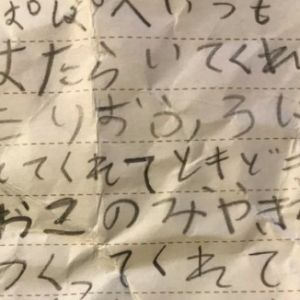 ぱぱへいつも
はたらいてくれ
たりおふろい
れてくれてときどき
おこのみやき
つくってくれて